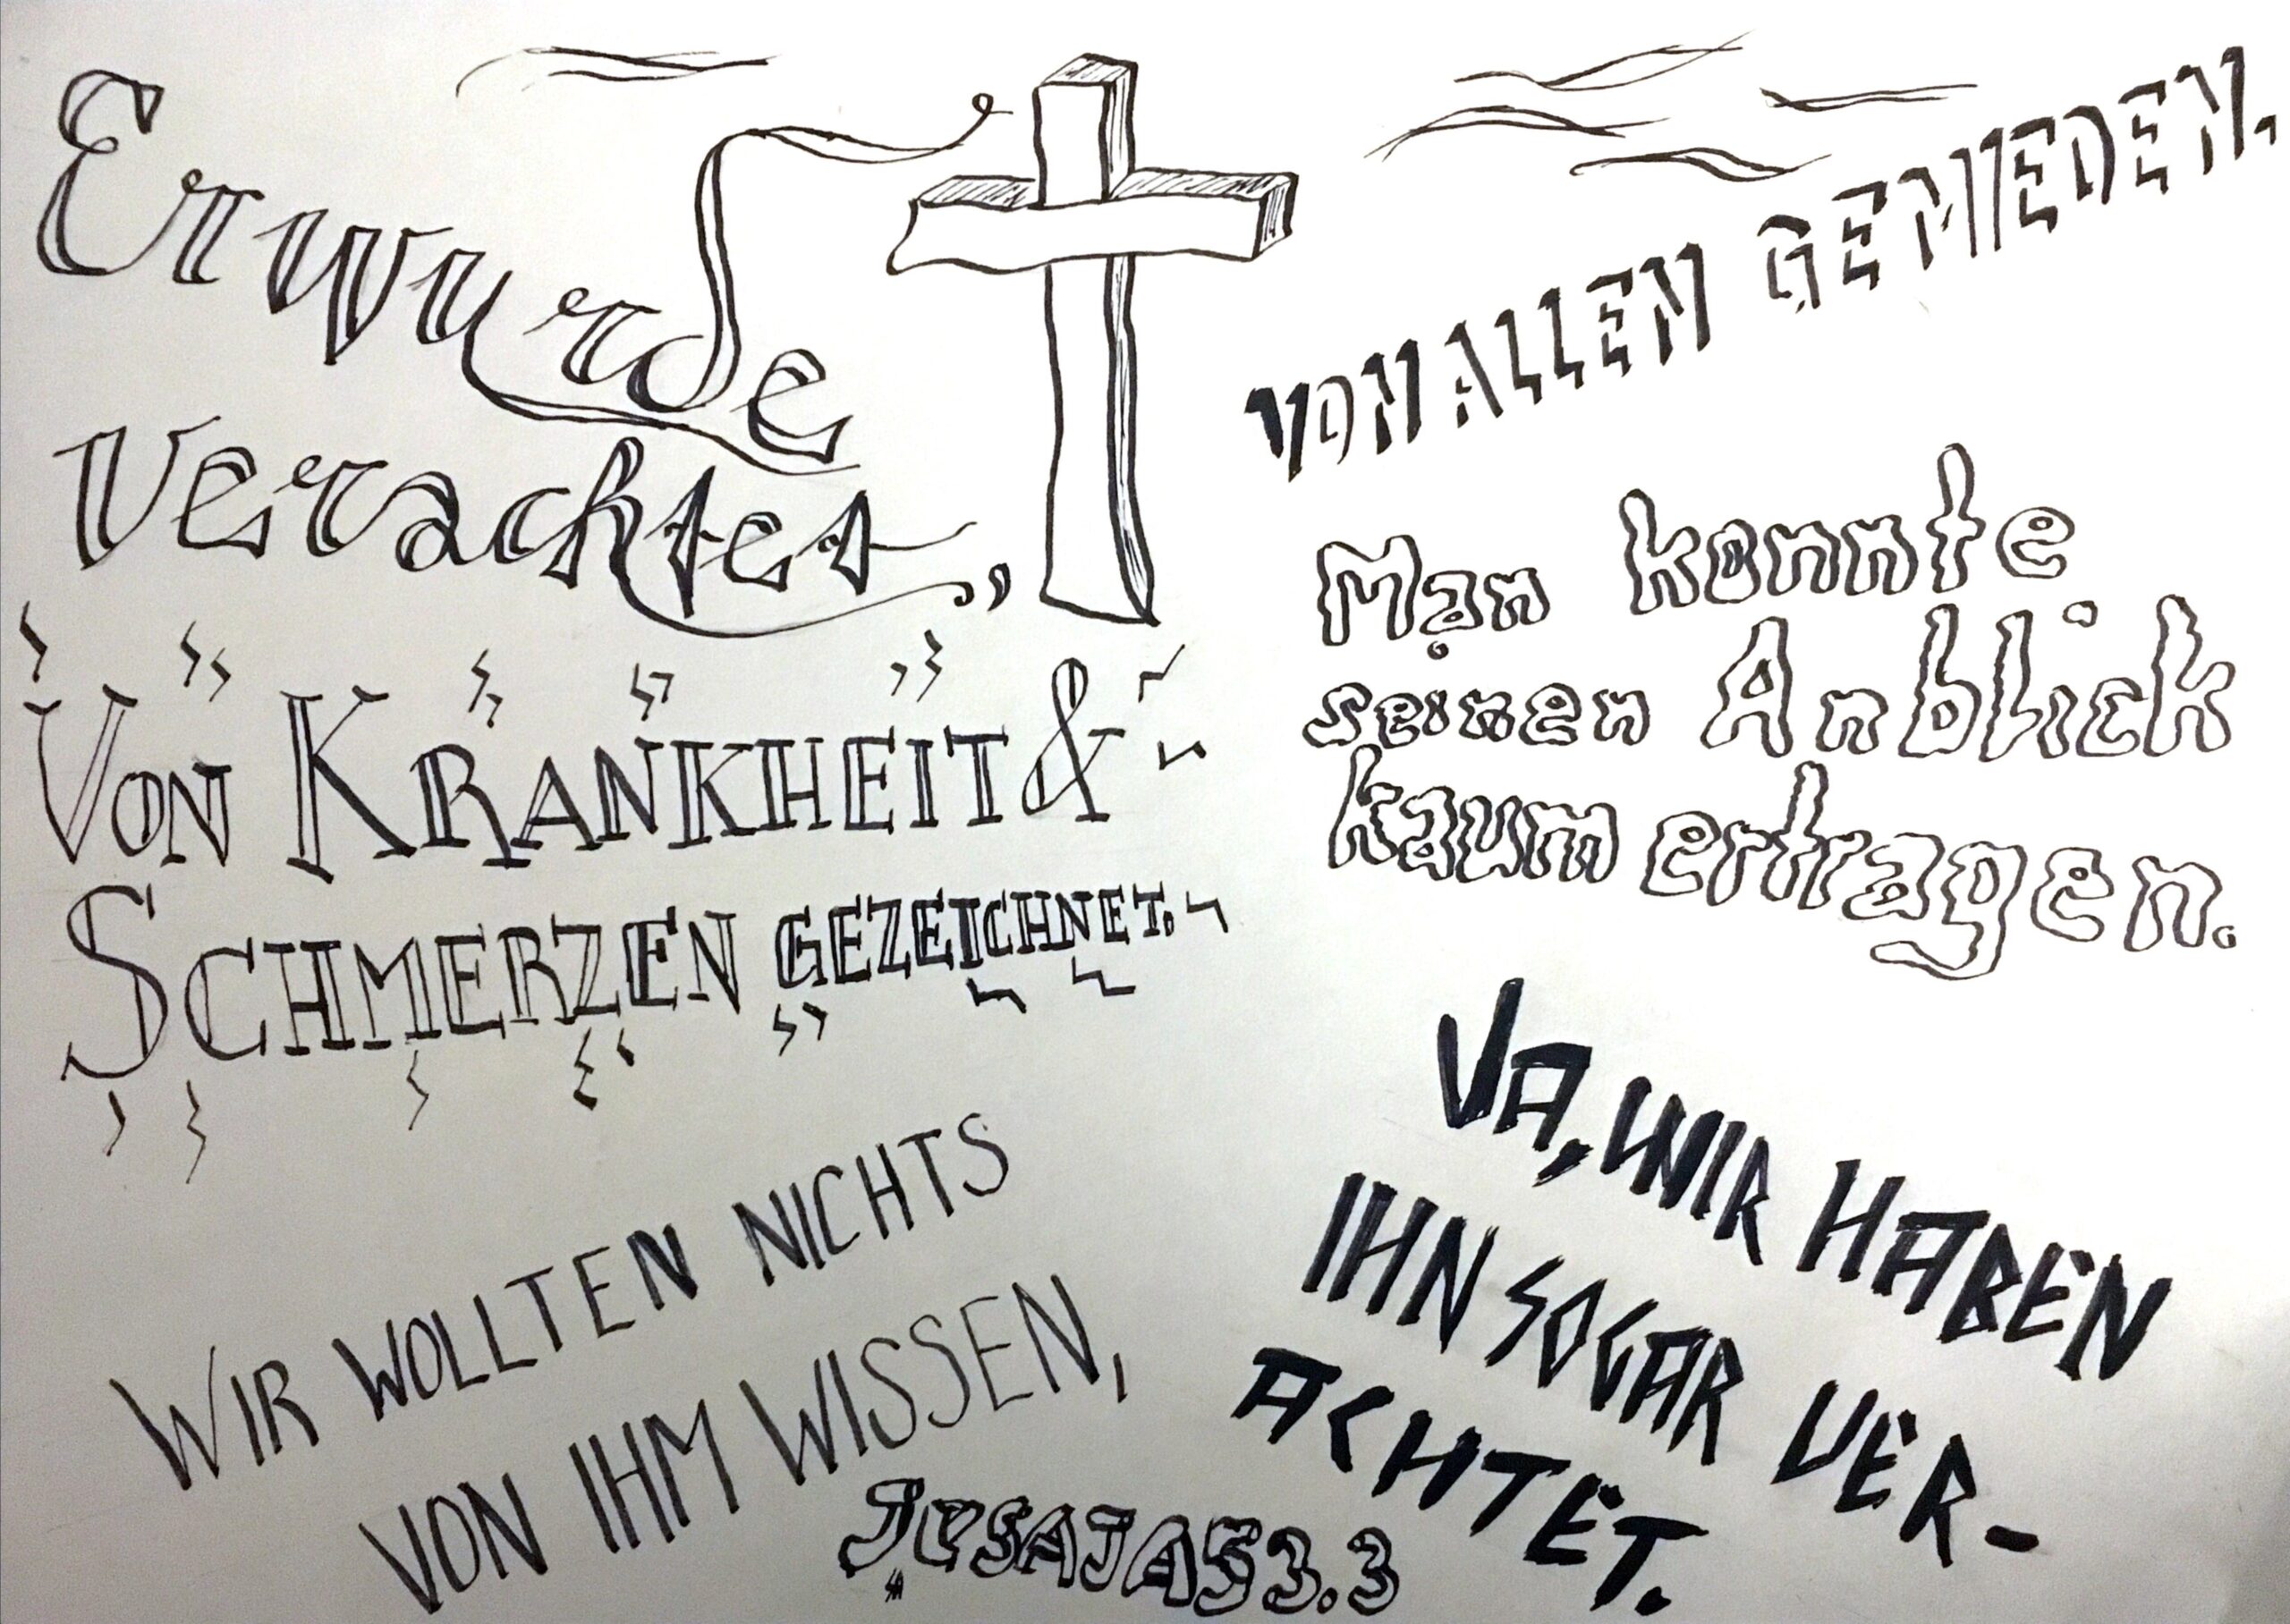 Er wurde
verachtet,
VON ALLEN GEMIEDEN.
VON KRANKHEIT &
SCHMERZEN GEZEICHNET.
Man konnte
seinen Anblick
kaum ertragen.
WIR WOLLTEN NICHTS
VON IHM WISSEN,
JA, WIR HABEN
IHN SOGAR VER-
ACHTET.
JESAJA 53.3